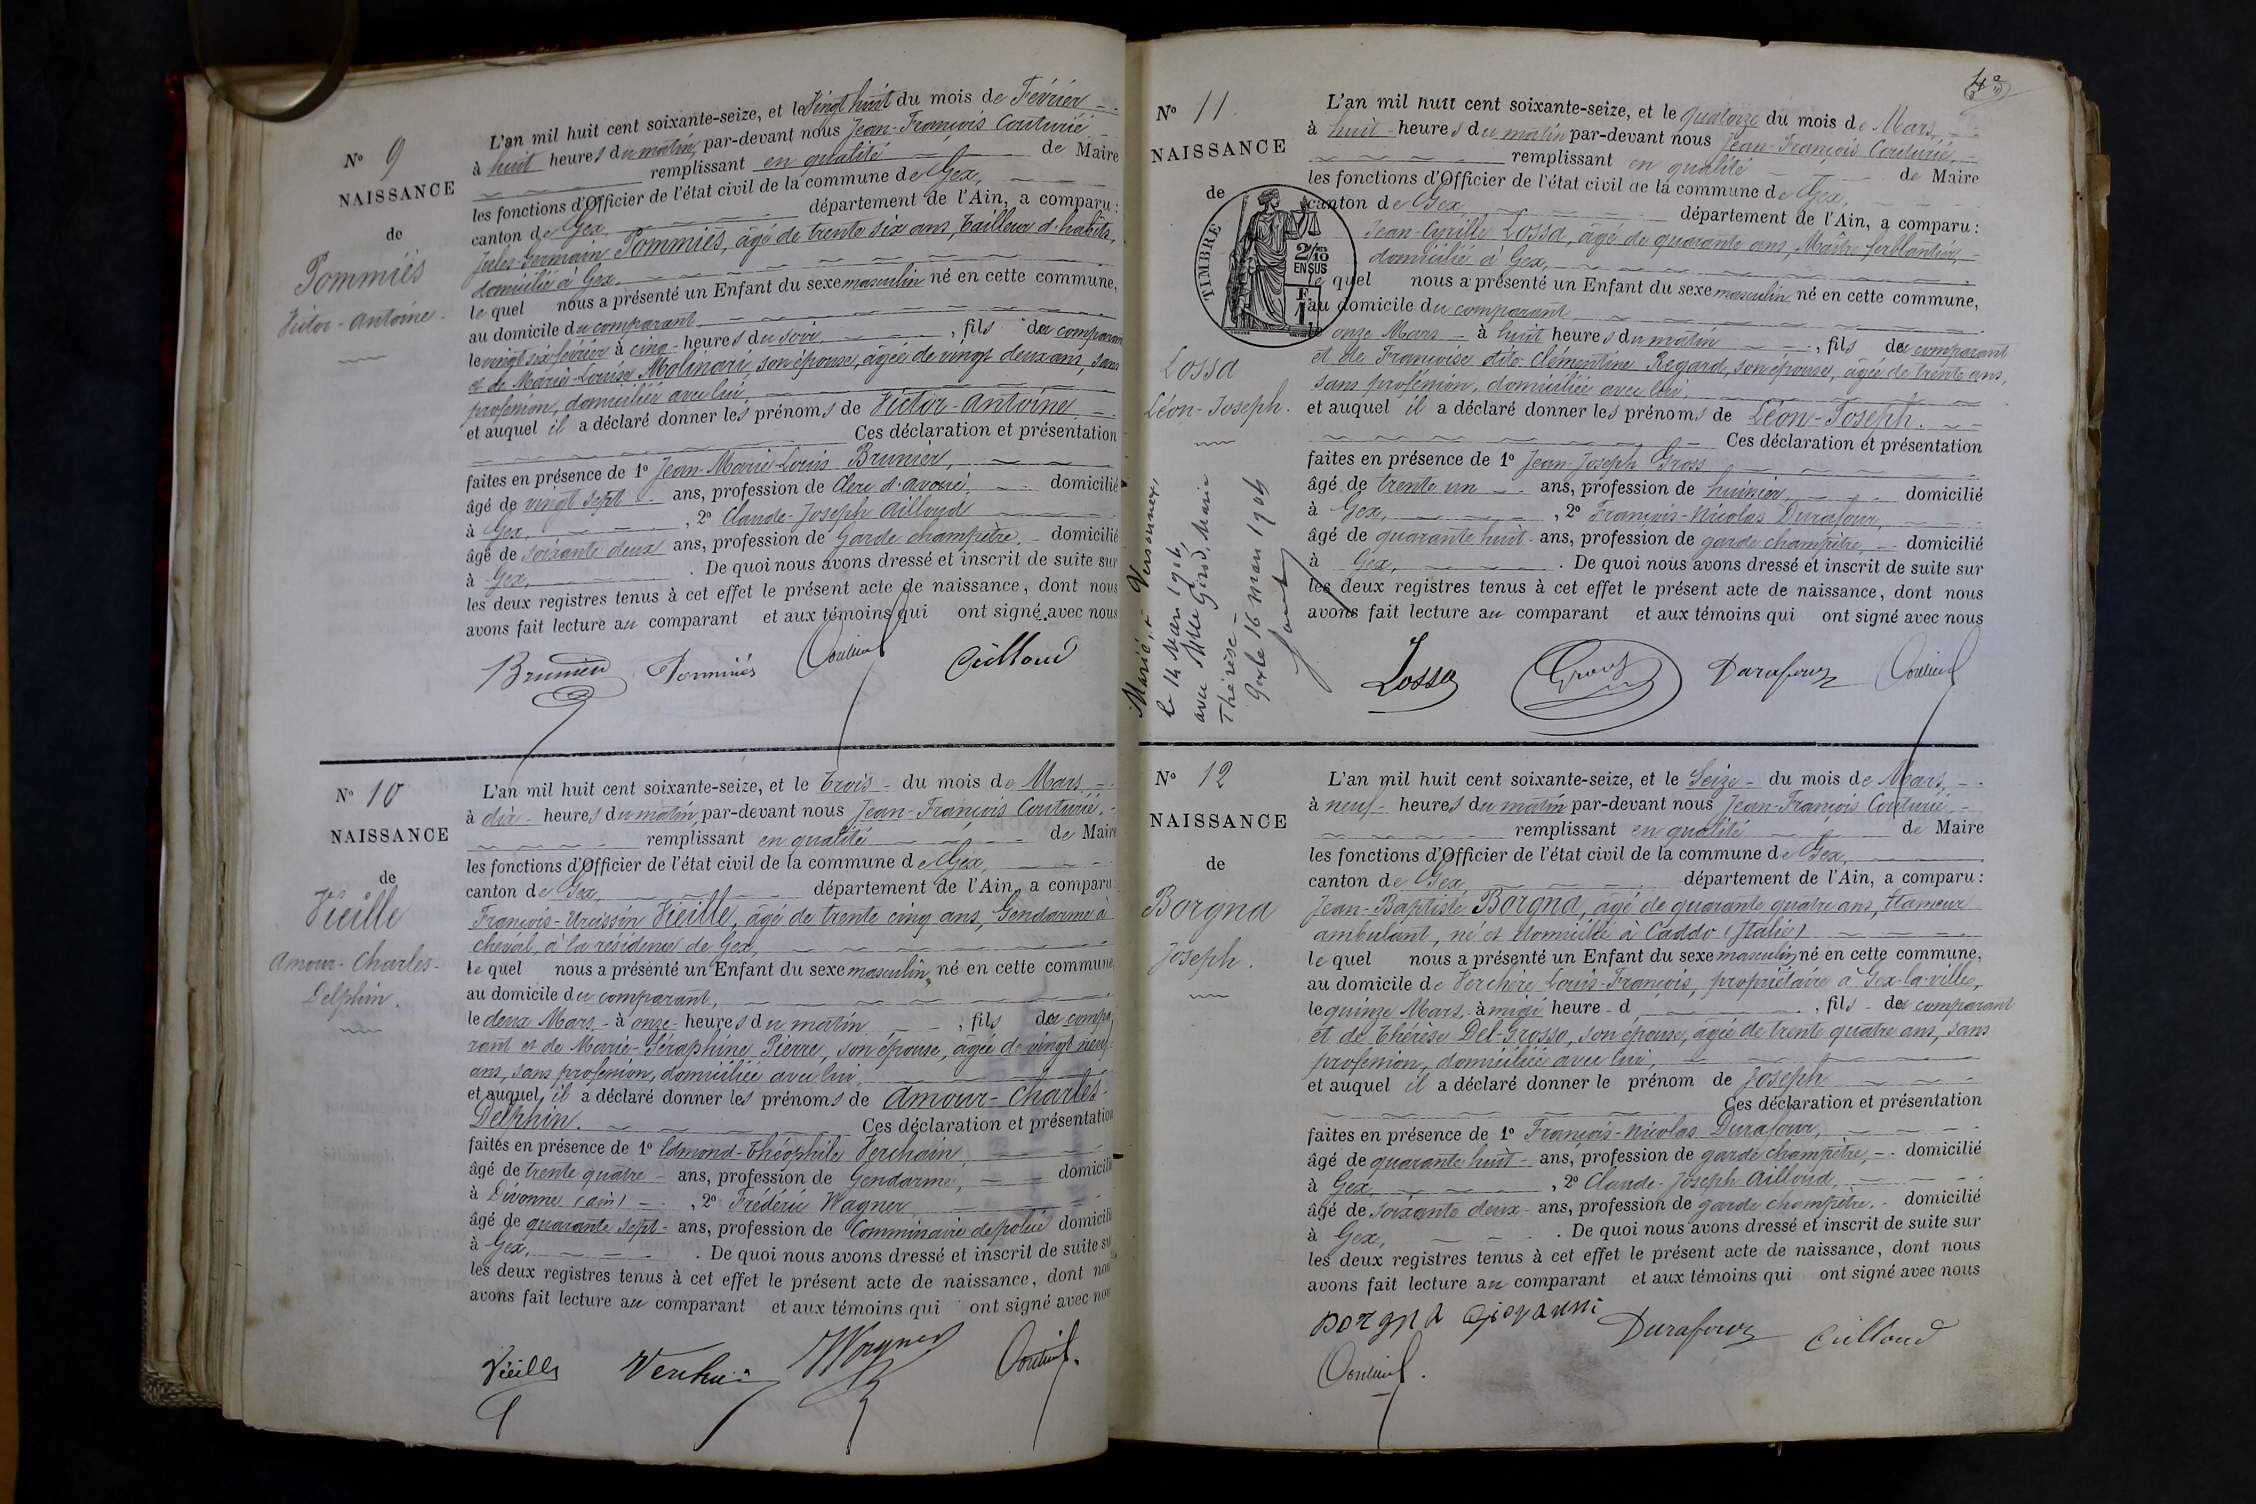 N° 9
NAISSANCE
de
Pommiés
Victor-Antoine.
L'an mil huit cent soixante-seize, et le Vingt huit du mois de Février
à huit heures du matin, par-devant nous Jean-François Couturié
remplissant en qualité de Maire
les fonctions d'Officier de l'état civil de la commune de Gex,
canton de Gex, département de l'Ain, a comparu :
Jules-Germain Pommiés, âgé de trente six ans, tailleur d'habits,
domicilié à Gex,
lequel nous a présenté un Enfant du sexe masculin né en cette commune,
au domicile du comparant,
le vingt six février à cinq heures du soir, fils du comparant
et de Marie-Louise Molinari, son épouse, âgée de vingt deux ans, sans
profession, domiciliée avec lui,
et auquel il a déclaré donner les prénoms de Victor-Antoine
Ces déclaration et présentation
faites en présence de 1° Jean-Marie-Louis Brunier,
âgé de vingt sept ans, profession de Clerc d'avoué, domicilié
à Gex, , 2° Claude-Joseph Ailloud
âgé de soixante deux ans, profession de garde champêtre, domicilié
à Gex, . De quoi nous avons dressé et inscrit de suite sur
les deux registres tenus à cet effet le présent acte de naissance, dont nous
avons fait lecture au comparant et aux témoins qui ont signé avec nous
Brunier Pommiés Couturié Ailloud
N° 10
NAISSANCE
de
Vieille
Amour-Charles-
Delphin.
L'an mil huit cent soixante-seize, et le trois du mois de Mars
à dix heures du matin, par-devant nous Jean-François Couturié,
remplissant en qualité de Maire
les fonctions d'Officier de l'état civil de la commune de Gex,
canton de Gex, département de l'Ain, a comparu :
François-Urcissin Vieille, âgé de trente cinq ans, Gendarme à
cheval, à la résidence de Gex,
lequel nous a présenté un Enfant du sexe masculin, né en cette commune,
au domicile du comparant,
le deux Mars à onze heures du matin, fils du compa
rant et de Marie-Séraphine Pierre, son épouse, âgée de vingt neuf
ans, sans profession, domiciliée avec lui,
et auquel il a déclaré donner les prénoms de Amour-Charles-
Delphin. Ces déclaration et présentation
faites en présence de 1° Edmond-Théophile Verchain,
âgé de trente quatre ans, profession de Gendarme, domicilié
à Divonne (ain) , 2° Frédéric Wagner
âgé de quarante sept ans, profession de Commissaire de police domicilié
à Gex, . De quoi nous avons dressé et inscrit de suite su
les deux registres tenus à cet effet le présent acte de naissance, dont nou
avons fait lecture au comparant et aux témoins qui ont signé avec nou
Vieille Verchain Wagner Couturié
4e
N° 11
NAISSANCE
de
TIMBRE
2/10
EN SUS
Lossa
Léon-Joseph.
Marié, à Versonnex,
le 14 Mars 1904,
avec Mlle Girod, Marie
Thérèse –
Gex le 16 Mars 1904
L'an mil huit cent soixante-seize, et le quatorze du mois de Mars
à huit heures du matin par-devant nous Jean-François Couturié,
remplissant en qualité de Maire
les fonctions d'Officier de l'état civil de la commune de Gex,
canton de Gex, département de l'Ain, a comparu :
Jean-Cyrille Lossa, âgé de quarante ans, Maître ferblantier,
domicilié à Gex,
lequel nous a présenté un Enfant du sexe masculin né en cette commune,
au domicile du comparant
le onze Mars à huit heures du matin, fils du comparant
et de Françoise dite Clémentine Regard, son épouse, âgée de trente ans,
sans profession, domiciliée avec lui,
et auquel il a déclaré donner les prénoms de Léon-Joseph.
Ces déclaration et présentation
faites en présence de 1° Jean-Joseph Gross
âgé de trente un ans, profession de huissier, domicilié
à Gex, , 2° François-Nicolas Durafour,
âgé de quarante huit ans, profession de garde champêtre, domicilié
à Gex, . De quoi nous avons dressé et inscrit de suite sur
les deux registres tenus à cet effet le présent acte de naissance, dont nous
avons fait lecture au comparant et aux témoins qui ont signé avec nous
Lossa Gross Durafour Couturié
N° 12
NAISSANCE
de
Borgna
Joseph.
L'an mil huit cent soixante-seize, et le Seize du mois de Mars
à neuf heures du matin par-devant nous Jean-François Couturié
remplissant en qualité de Maire
les fonctions d'Officier de l'état civil de la commune de Gex,
canton de Gex, département de l'Ain, a comparu :
Jean-Baptiste Borgna, âgé de quarante quatre ans, étameur
ambulant, né et domicilié à Caddo (Italie)
lequel nous a présenté un Enfant du sexe masculin né en cette commune,
au domicile de Verchère Louis-François, propriétaire à Gex-la-ville,
le quinze Mars à midi heure d , fils du comparant
et de Thérèse Del-Grosso, son épouse, âgée de trente quatre ans, sans
profession, domiciliée avec lui,
et auquel il a déclaré donner le prénom de Joseph
Ces déclaration et présentation
faites en présence de 1° François-Nicolas Durafour,
âgé de quarante huit ans, profession de garde champêtre, domicilié
à Gex, , 2° Claude-Joseph Ailloud,
âgé de soixante deux ans, profession de garde champêtre, domicilié
à Gex, . De quoi nous avons dressé et inscrit de suite sur
les deux registres tenus à cet effet le présent acte de naissance, dont nous
avons fait lecture au comparant et aux témoins qui ont signé avec nous
Borgna Giovanni Durafour Ailloud
Couturié